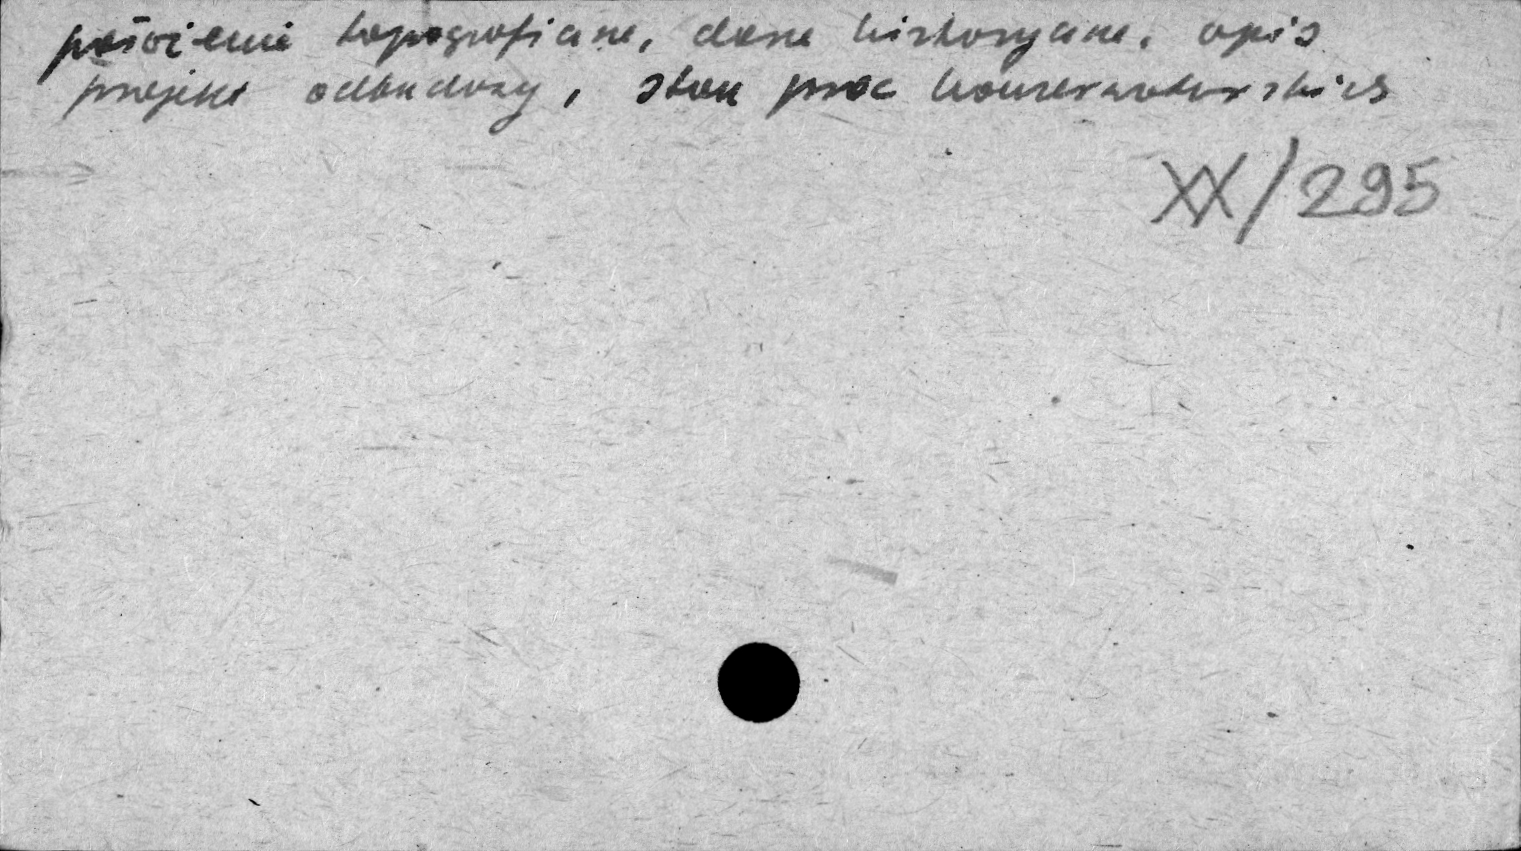 położenie topograficzne, dane historyczne, opis
projekt odbudowy, stan prac konserwatorskich
XX/295